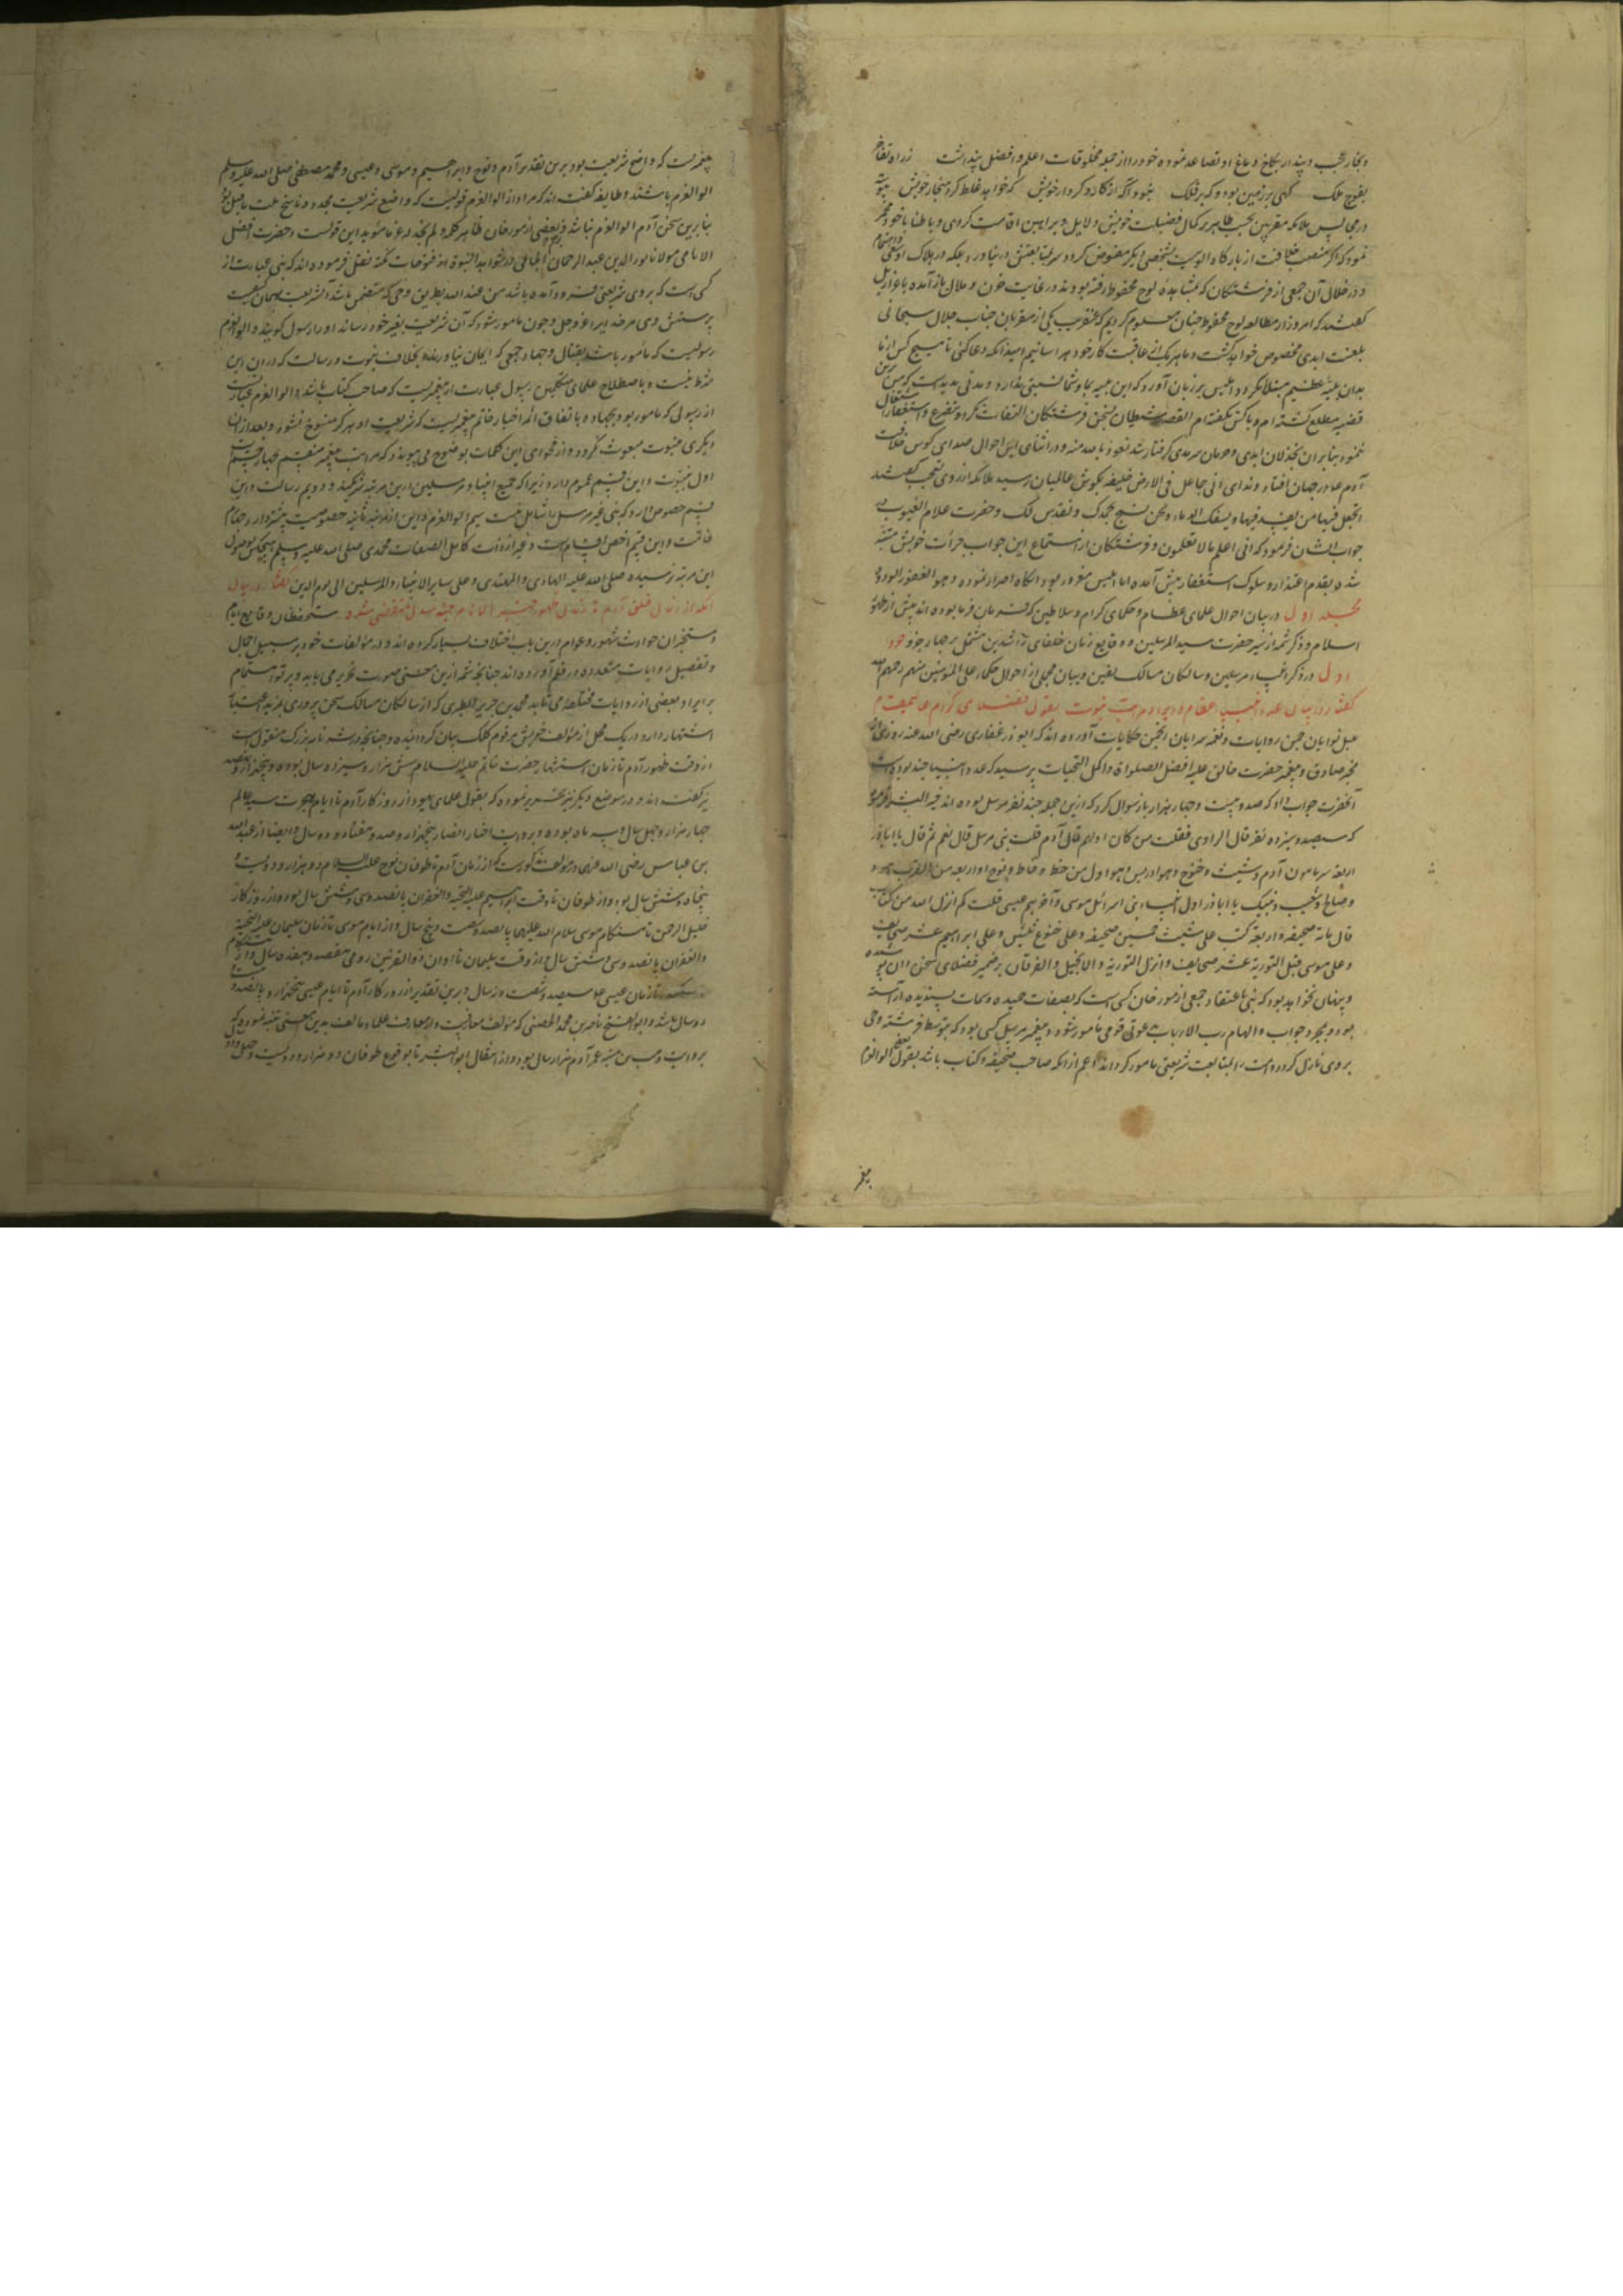 و بخار عجب و پندار بکاخ دماغ او تصاعد نموده خود را از جمله مخلوقات اعلم و افضل پنداشت
بفوج ملک کهی بر زمین بود و که بر فلک نبود آگه از کار و کردار خویش که خواهد غلط کرد هنجار خویش
در مجالس ملائکه مقربین بحسب ظاهر بر کمال فضیلت خویش دلایل و براهین اقامت کردی و باطنا با خود
نمود که اگر منصب خلافت از بارگاه الوهیت بشخصی دیگر مفوض کردد سر بمتابعتش در نیاورد بلکه در هلاک او سعی
و در خلال آن جمعی از فرشتگان که بمشاهده لوح محفوظ رفته بودند در غایت حزن و ملال باز آمده با عزازیل
گفتند که امروز از مطالعه لوح محفوظ چنان معلوم کردیم که عنقریب یکی از مقربان جناب جلال سبحانی
بلعنت ابدی مخصوص خواهد گشت و ما هر یک از عاقبت کار خود هراسانیم امید آنکه دعا کنی تا هیچ کس از ما
بدان بلیه عظیم مبتلا نکردد ابلیس بر زبان آورد که این بلیه بما و شما نسبتی ندارد و مدتی مدیدست که من
قضیه مطلع گشته ام و با کس نگفته ام القصه شیطان بسخن فرشتگان التفات نکرد و بتضرع و استغفار
ننمود بنابر آن بخذلان ابدی و حرمان سرمدی گرفتار شد نعوذ بالله منه و در اثنای این احوال صدای کوس خلافت
آدم علا در جهان افتاد و ندای انی جاعل فی الارض خلیفه بگوش عالمیان رسید ملائکه از روی تعجب گفتند
اتجعل فیها من یفسد فیها و یسفک الدماء و نحن نسبح بحمدک و نقدس لک و حضرت علام الغیوب
جواب ایشان فرمود که انی اعلم ما لا تعلمون و فرشتگان از استماع این جواب جرأت خویش متنبه
شده بقدم اعتذار و سلوک استغفار پیش آمدند اما ابلیس مغرور بود بر انکار اصرار نموده و هو الغفور الودود
مجلد اول در بیان احوال علمای عظام و حکمای کرام و سلاطین که فرمان فرما بوده اند پیش از ظهور
اسلام و ذکر شمه از سیر حضرت سید المرسلین و وقایع زمان خلفای راشدین مشتمل بر چهار جزو جزو
اول در ذکر انبیاء مرسلین و سالکان مسالک یقین و بیان مجملی از احوال حکماء علی الموسین منهم رحمهم الله
گفتار در بیان عدد انبیاء عظام و ایراد مراتب نبوت بقول فضلای کرام
بلبل نوایان چمن روایات و نغمه سرایان انجمن حکایات آورده اند که ابو ذر غفاری رضی الله عنه روزی از
مخبر صادق و پیغمبر حضرت خالق علیه افضل الصلوات و اکمل التحیات پرسید که عدد انبیا چند بوده است
آنحضرت جواب داد که صد و بیست و چهار هزار باز سوال کرد که ازین جمله چند نفر مرسل بوده اند خیر البشر فرمود
که سیصد و سیزده نفر قال الراوی فقلت من کان اولهم قال آدم قلت نبی مرسل قال نعم ثم قال یا اباذر
اربعه سریانیون آدم و شیث و خنوخ و هو ادریس و هو اول من خط و خاط و نوح و اربعه من العرب هود
و صالح و شعیب و نبیک یا اباذر اول انبیاء بنی اسرائیل موسی و آخرهم عیسی قلت کم انزل الله من کتاب
قال مائة صحیفه و اربعة کتب علی شیث خمسین صحیفه و علی خنوخ ثلثین و علی ابراهیم عشر صحایف
و علی موسی قبل التوریة عشر صحایف و انزل التوریة و الانجیل و الفرقان بر ضمیر فضلای سخن دان پوشیده
و پنهان نخواهد بود که نبی باعتقاد جمعی از مورخان کسی است که بصفات حمیده و سمات پسندیده آراسته
بود و بمجرد جواب و الهام رب الارباب بدعوتی قومی مأمور شود و پیغمبر مرسل کسی بود که بتوسط فرشته وحی
بر وی نازل گردد و امت را بمتابعت شریعتی مأمور گرداند اعم از آنکه صاحب صحیفه و کتاب باشد یا نه بقول بعضی اولوالعزم
پیغمبر
پیغمبریست که واضع شریعت بود برین تقدیر آدم و نوح و ابراهیم و موسی و عیسی و محمد مصطفی صلی الله علیه و سلم
الوالعزم باشند و طایفه گفته اند که مراد از الوالعزم قومیست که واضع شریعت مجدد و ناسخ ملت ما قبل بود
بنابرین سخن آدم الوالعزم نباشد و بزعم بعضی از مورخان ظاهر کلمه و لم نجد له عزما مؤید این قولست و حضرت افضل
الانامی مولانا نور الدین عبد الرحمان الجامی در شواهد النبوة از فتوحات مکیه نقل فرموده اند که نبی عبارت از
کسی است که بر وی شریعتی فرود آمده باشد من عند الله بطریق وحی که متضمن باشد آن شریعت بیان کیفیت
پرستش وی مر خدایرا عز و جل و چون مأمور شود که آن شریعت بغیر خود رساند او را رسول گویند و اولوالعزم
رسولیست که مأمور باشد بقتال و جهاد جمعی که ایمان نیاورند بخلاف نبوت و رسالت که در آن این
شرط نیست و باصطلاح علمای متکلمین رسول عبارت از پیغمبریست که صاحب کتاب باشد و الوالعزم عبارت
از رسولی که مأمور بود بجهاد و باتفاق ائمه اخبار خاتم پیغمبریست که شریعت او هرگز منسوخ نشود و بعد از آن
دیگری بنبوت مبعوث نگردد و از فحوای این کلمات بوضوح می پیوندد که مراتب پیغمبر منقسم بچهار قسم
اول نبوت و این قسم عموم دارد زیرا که جمیع انبیاء و مرسلین درین مرتبه شریکند و دویم رسالت و این
قسم خصوص دارد که نبی غیر مرسل را شامل نیست سیم الوالعزم و این از مرتبه ثانیه خصوصیت بیشتر دارد چهارم
خاتمیت و این قسم اخص اقسام است و غیر از ذات کامل الصفات محمدی صلی الله علیه و سلم هیچکس بوصول
این مرتبه نرسیده صلی الله علیه الهادی و المهتدی و علی سایر الانبیاء و المرسلین الی یوم الدین گفتار در بیان
آنکه از زمان خلق آدم تا زمان ظهور خیر الانام چند سال منقضی شده مستحفظان وقایع ایام
و مستخبران حوادث شهور و اعوام درین باب اختلاف بسیار کرده اند و در مؤلفات خود بر سبیل اجمال
و تفصیل روایات متعدده در قلم آورده اند چنانچه شمه ازین معنی صورت تحریر می یابد و پرتو اهتمام
بر ایراد بعضی از روایات مختلفه می تابد محمد بن جریر الطبری که از سالکان مسالک سخن پروری بمزید اعتبار
اشتهار دارد در یک محل از مؤلف خویش مرقوم کلک بیان گردانیده و چنانچه در شه نامه بزرگ منقول است
از وقت ظهور آدم تا زمان استشهار حضرت خاتم علیه السلام شش هزار و سیزده سال بوده و پنج هزار و نهصد
نیز گفته اند و در موضع دیگر نیز تحریر نموده که بقول علمای یهود از روزگار آدم تا ایام هجرت سید عالم
چهار هزار و چهل سال و سه ماه بوده و بروایت اخبار انصار پنجهزار و صد و هفتاد و دو سال و ایضا از عبد الله
بن عباس رضی الله عنهما در مؤلف مذکورست که از زمان آدم تا طوفان نوح علیه السلام دو هزار و دویست و
پنجاه و شش سال بود و از طوفان تا وقت ابراهیم علیه التحیه و الغفران پانصد و سی و شش سال بود و از روزگار
خلیل الرحمن تا هنگام موسی سلام الله علیهما پانصد و شصت و پنج سال و از ایام موسی تا زمان سلیمان علیه التحیة
و الغفران پانصد و سی و شش سال و از وقت سلیمان تا اوان ذوالقرنین رومی هفتصد و هفده سال و از هنگام
سکندر تا زمان عیسی علا سیصد و شصت و نه سال و برین تقدیر از روزگار آدم تا ایام عیسی پنجهزار و پانصد و
دو سال باشد و ابو الفتح ناصر بن محمد الحصنی که مؤلف معانیست و از معارف علماء طائف بدین معنی تنبیه نموده که
بروایت وهب بن منبه عمر آدم هزار سال بود و از انتقال ابو البشر تا بوقوع طوفان دو هزار و دویست و چهل و دو